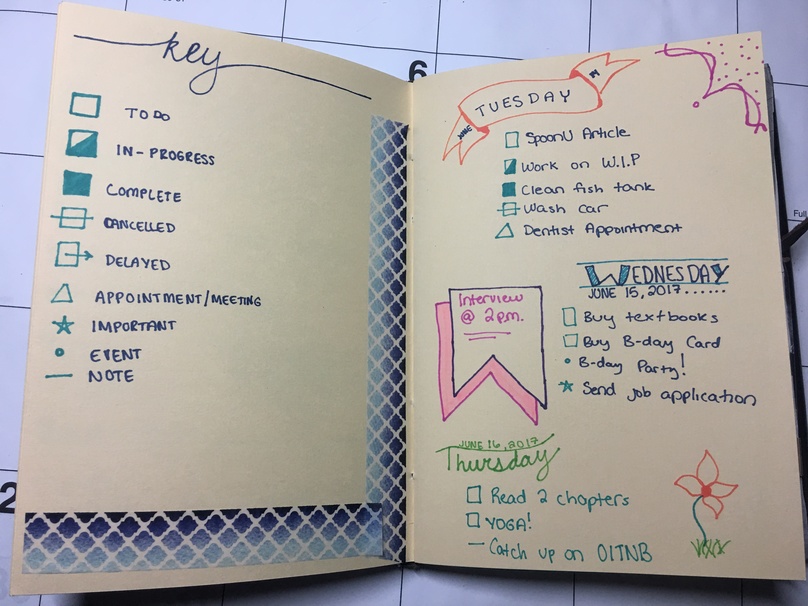 key
TO DO
IN-PROGRESS
COMPLETE
CANCELLED
DELAYED
APPOINTMENT/MEETING
IMPORTANT
EVENT
NOTE
6
2
Full
JUNE
TUESDAY
14
SpoonU Article
Work on W.I.P
Clean fish tank
Wash car
Dentist Appointment
WEDNESDAY
JUNE 15, 2017......
Buy textbooks
Buy B-day Card
B-day Party!
Send job application
Interview
@ 2pm.
JUNE 16, 2017
Thursday
Read 2 chapters
YOGA!
Catch up on OITNB